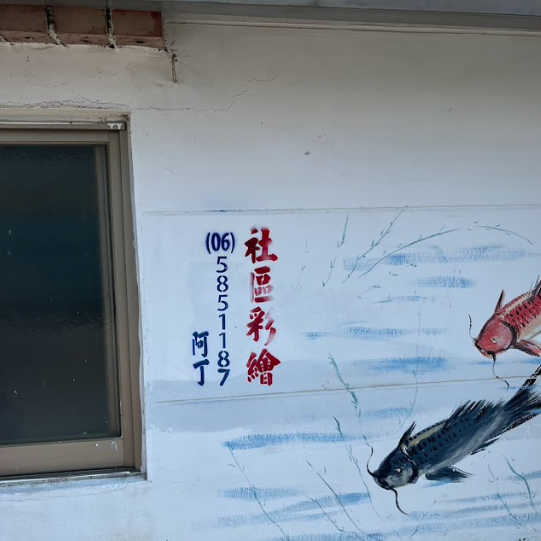 社區彩繪
(06)5851187
阿丁